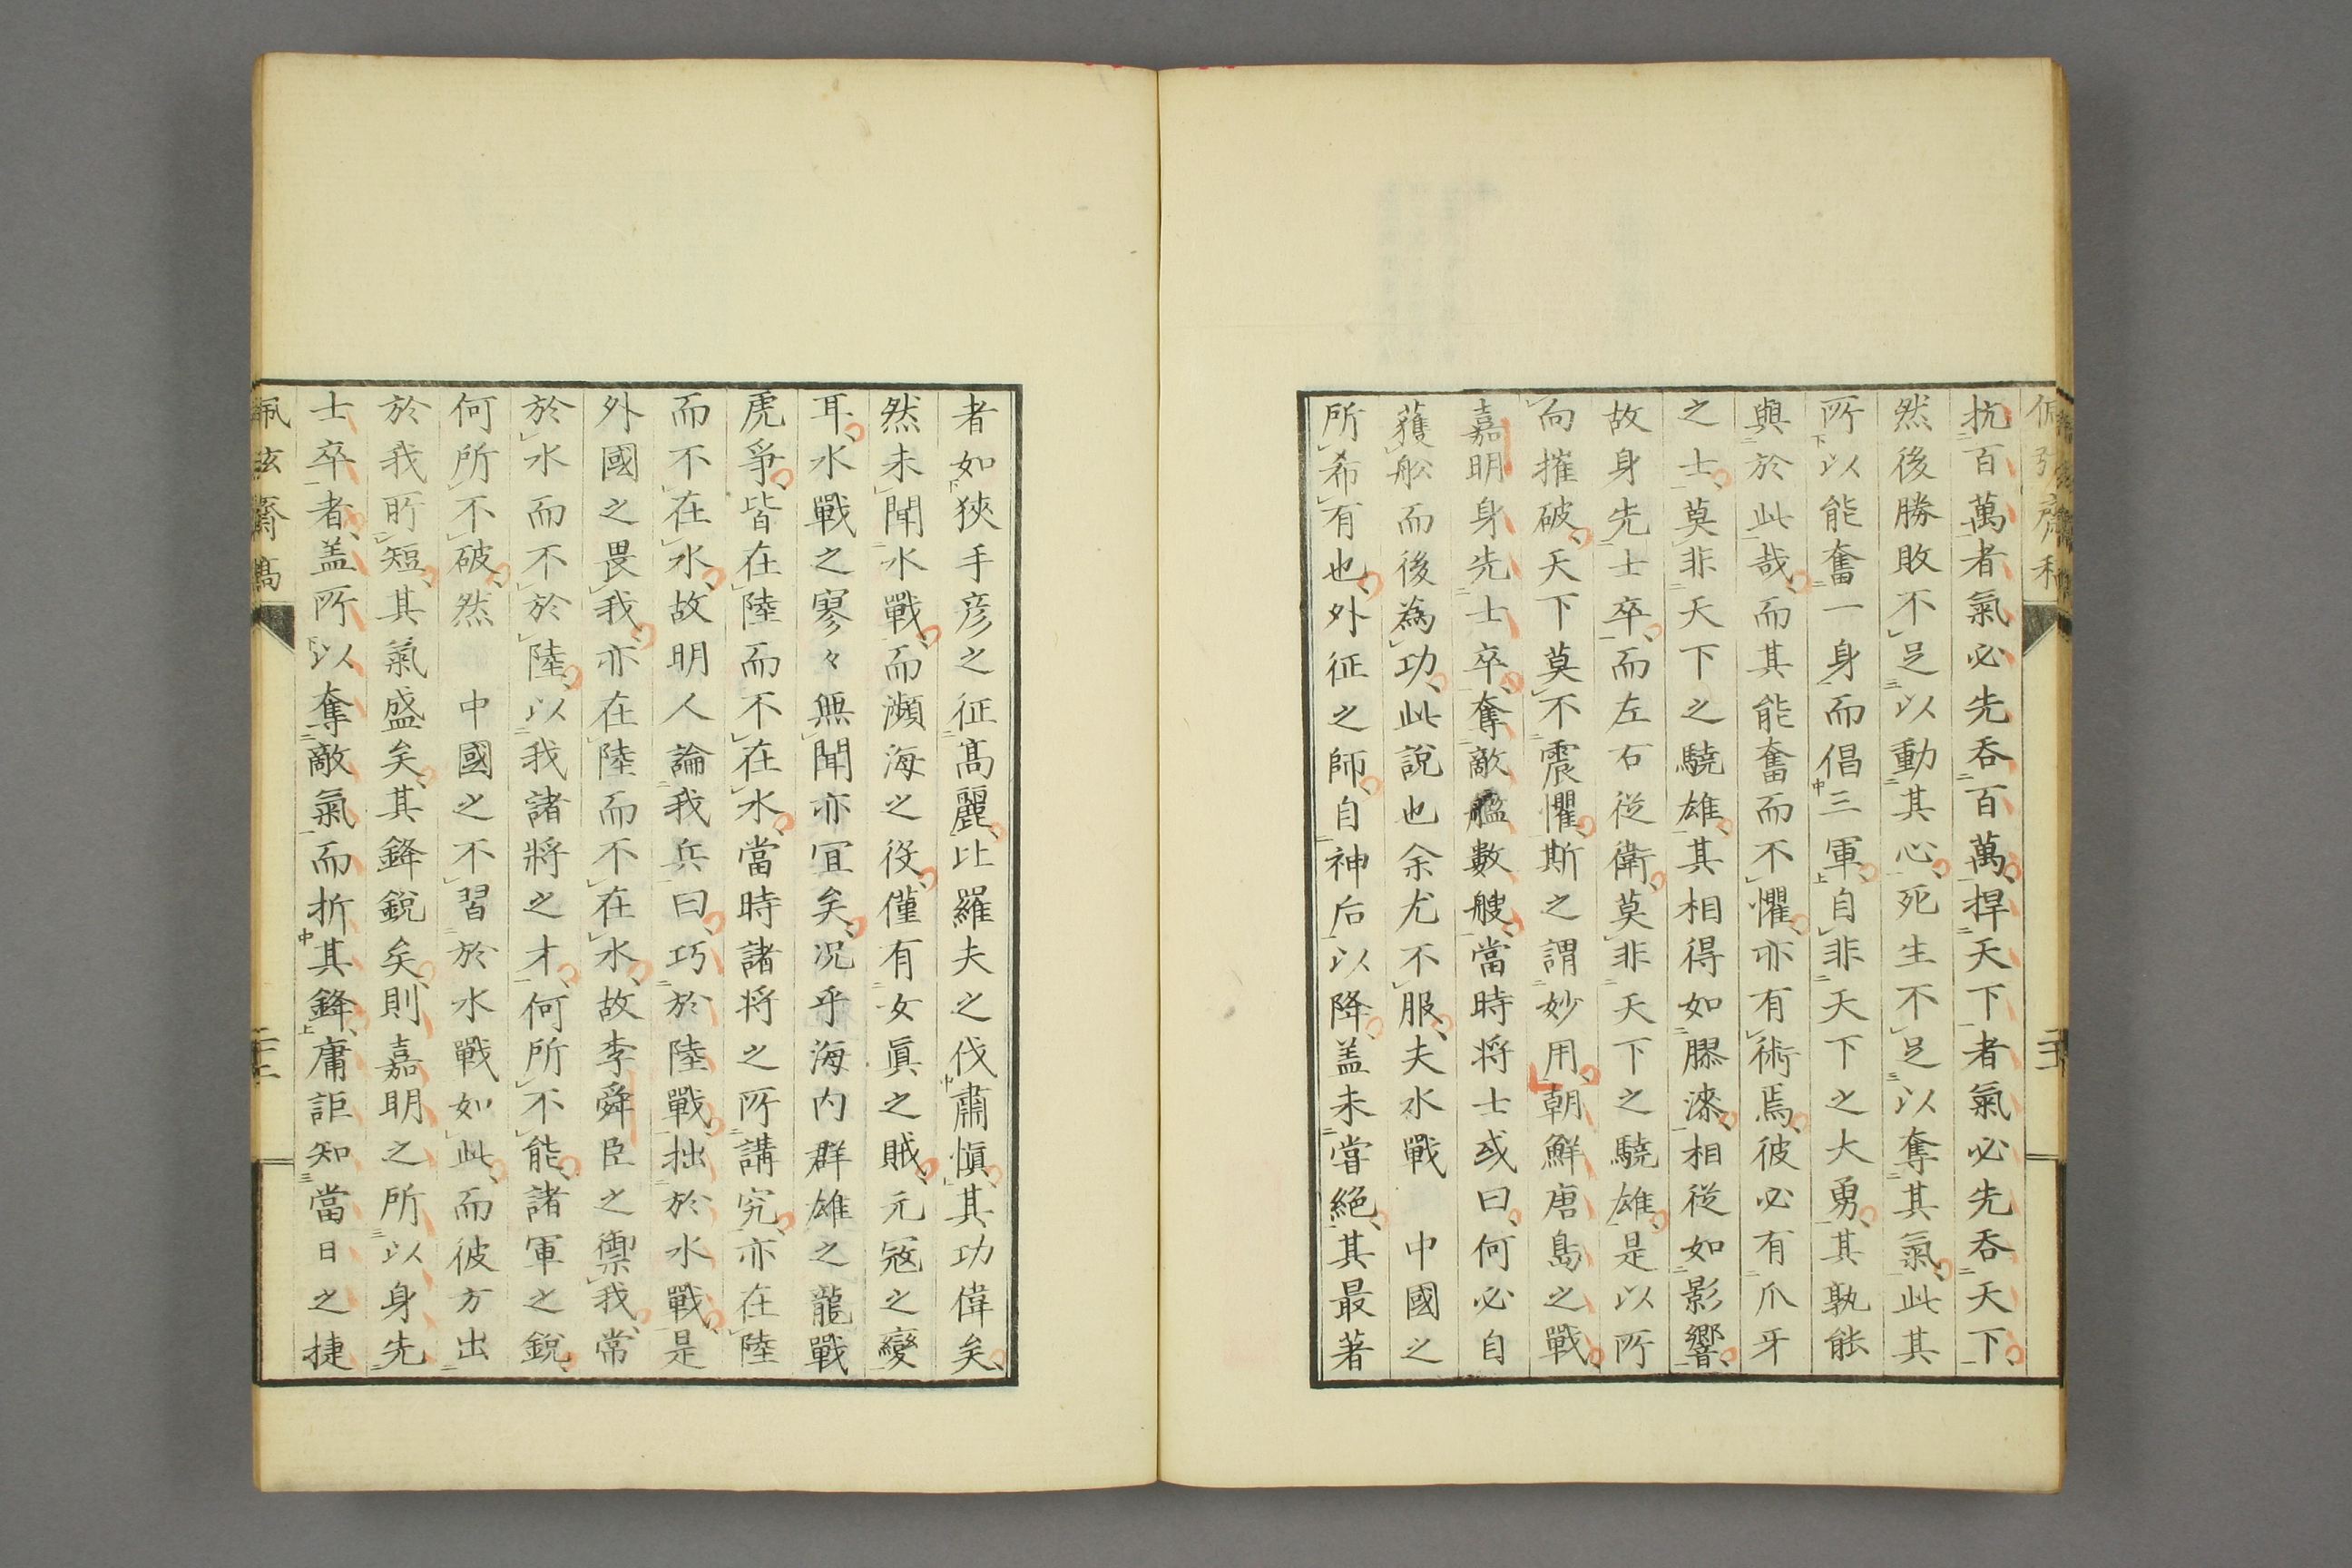 抗百萬者氣必先呑百萬捍天下者氣必先呑天下
然後勝敗不足以動其心死生不足以奪其氣此其
所以能奮一身而倡三軍自非天下之大勇其孰能
與於此哉而其能奮而不懼亦有術焉彼必有爪牙
之士莫非天下之驍雄其相得如膠漆相從如影響
故身先士卒而左右從衛莫非天下之驍雄是以所
向摧破天下莫不震懼斯之謂妙用朝鮮唐島之戰
嘉明身先士卒奪敵艦數艘當時将士或曰何必自
獲舩而後為功此說也余尤不服夫水戰　中國之
所希有也外征之師自神后以降盖未嘗絕其最著
者如狹手彦之征髙麗比羅夫之伐肅愼其功偉矣
然未聞水戰而瀕海之役僅有女眞之賊元冦之變
耳水戰之寥々無聞亦冝矣况乎海内群雄之龍戰
虎爭皆在陸而不在水當時諸将之所講究亦在陸
而不在水故明人論我兵曰巧於陸戰拙於水戰是
外國之畏我亦在陸而不在水故李舜臣之禦我常
於水而不於陸以我諸將之才何所不能諸軍之銳
何所不破然　中國之不習於水戰如此而彼方出
於我所短其氣盛矣其鋒銳矣則嘉明之所以身先
士卒者盖所以奪敵氣而折其鋒庸詎知當日之捷
佩弦齋